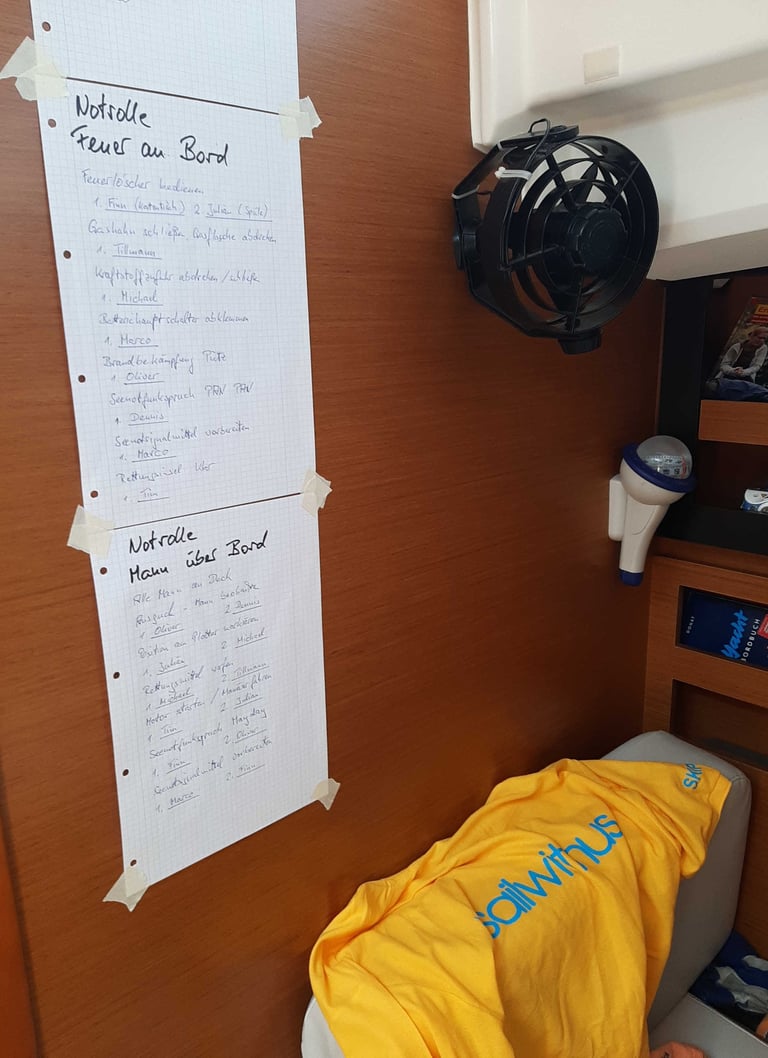 Notrolle
Feuer an Bord
Feuerlöscher bedienen
1. Finn 2. Julian (Spüle)
Gashahn schließen, Gasflasche abdrehen
1. Tillmann
Kraftstoffzufuhr abdrehen /
1. Michael
abklemmen
1. Marco
Brandbekämpfung Pütz
1. Oliver
Seenotfunkspruch PAN PAN
1. Dennis
Seenotsignalmittel vorbereiten
1. Marco
Rettungsinsel klar
1. Tim
Notrolle
Mann über Bord
Alle Mann an Deck
Ausguck - Mann
1. Oliver 2. Dennis
Position am Plotter markieren
1. Julian 2. Michael
Rettungsmittel werfen
1. Michael 2. Tillmann
Motor starten / Manöver fahren
1. Tim 2. Julian
Seenotfunkspruch Mayday
1. Finn 2. Oliver
Seenotsignalmittel vorbereiten
1. Marco 2. Finn
Yacht
BORDBUCH
SKIP
sailwithus